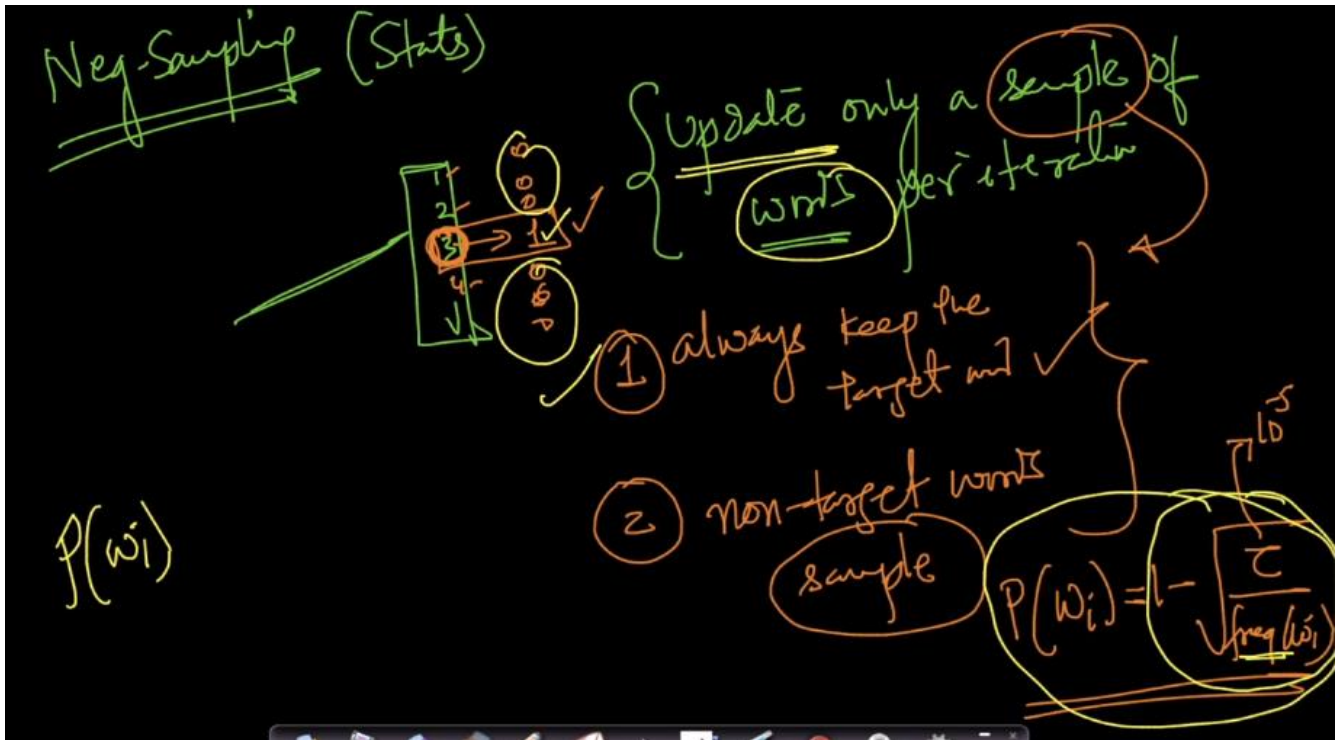 Neg-Sampling (Stats)
{ update only a sample of
words per iteration
1
2
3 → 1
4
V
1 always keep the
target word ✓
2 non-target words
sample
10^-5
P(wi) = 1 - √(τ / freq(wi))
P(wi)